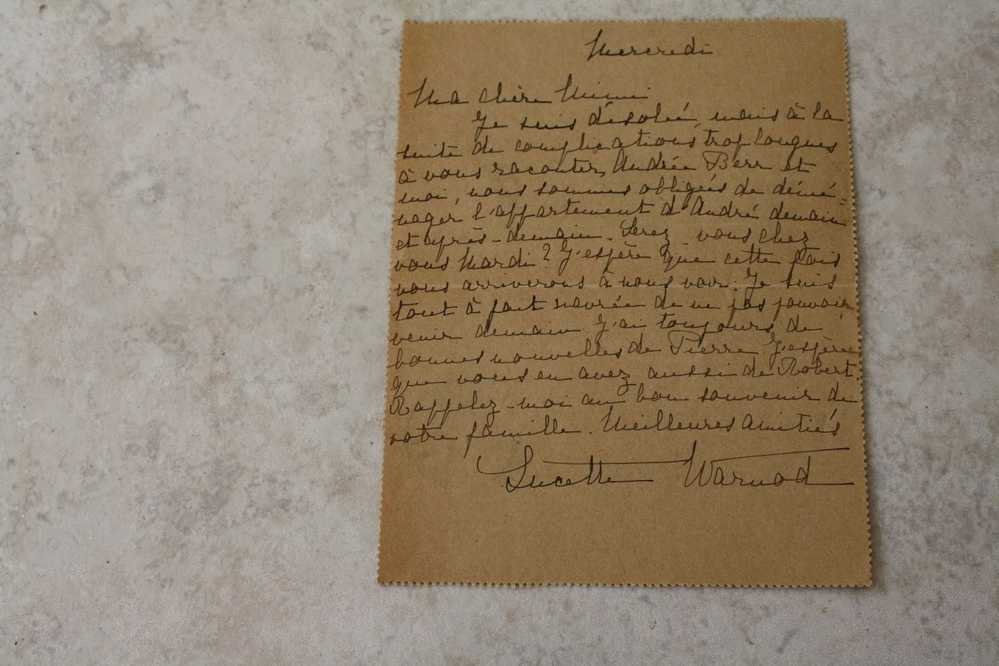 Mercredi
Ma chère Mimi
Je suis désolée, mais à la
suite de complications, trop longues
à vous raconter, Andrée Berr et
moi, nous sommes obligées de démé-
nager l'appartement d'André demain
et après-demain. Serez-vous chez
vous Mardi? J'espère que cette fois
nous arriverons à nous voir. Je suis
tout à fait navrée de ne pas pouvoir
venir demain. J'ai toujours de
bonnes nouvelles de Pierre J'espère
que vous en avez aussi de Robert.
Rappelez-moi au bon souvenir de
votre famille. Meilleures amitiés
Lucette Warnod